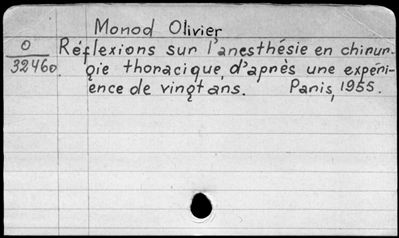 Monod Olivier
O
32460.
Réflexions sur l'anesthésie en chirur-
gie thoracique, d'après une expéri-
ence de vingt ans. Paris, 1955.